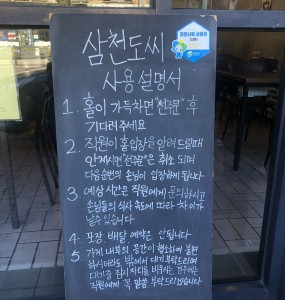 삼천도씨
사용설명서
1. 홀이 가득차면 "선주문" 후
기다려주세요
2. 직원이 홀입장을 알려드릴때
안계시면 "선주문"은 취소 되며
다음순번의 손님이 입장하게 됩니다
3. 예상시간은 직원에게 문의하시고
손님들의 식사 속도에 따라 차이가
날수있습니다
4. 포장. 배달 예약은 안됩니다
5. 가게 내부의 공간이 협소하여 불편
하시더라도 밖에서 대기 부탁드리며
대기중 잠시 자리를 비우시는 경우에는
직원에게 꼭 말씀 부탁드리겠습니다